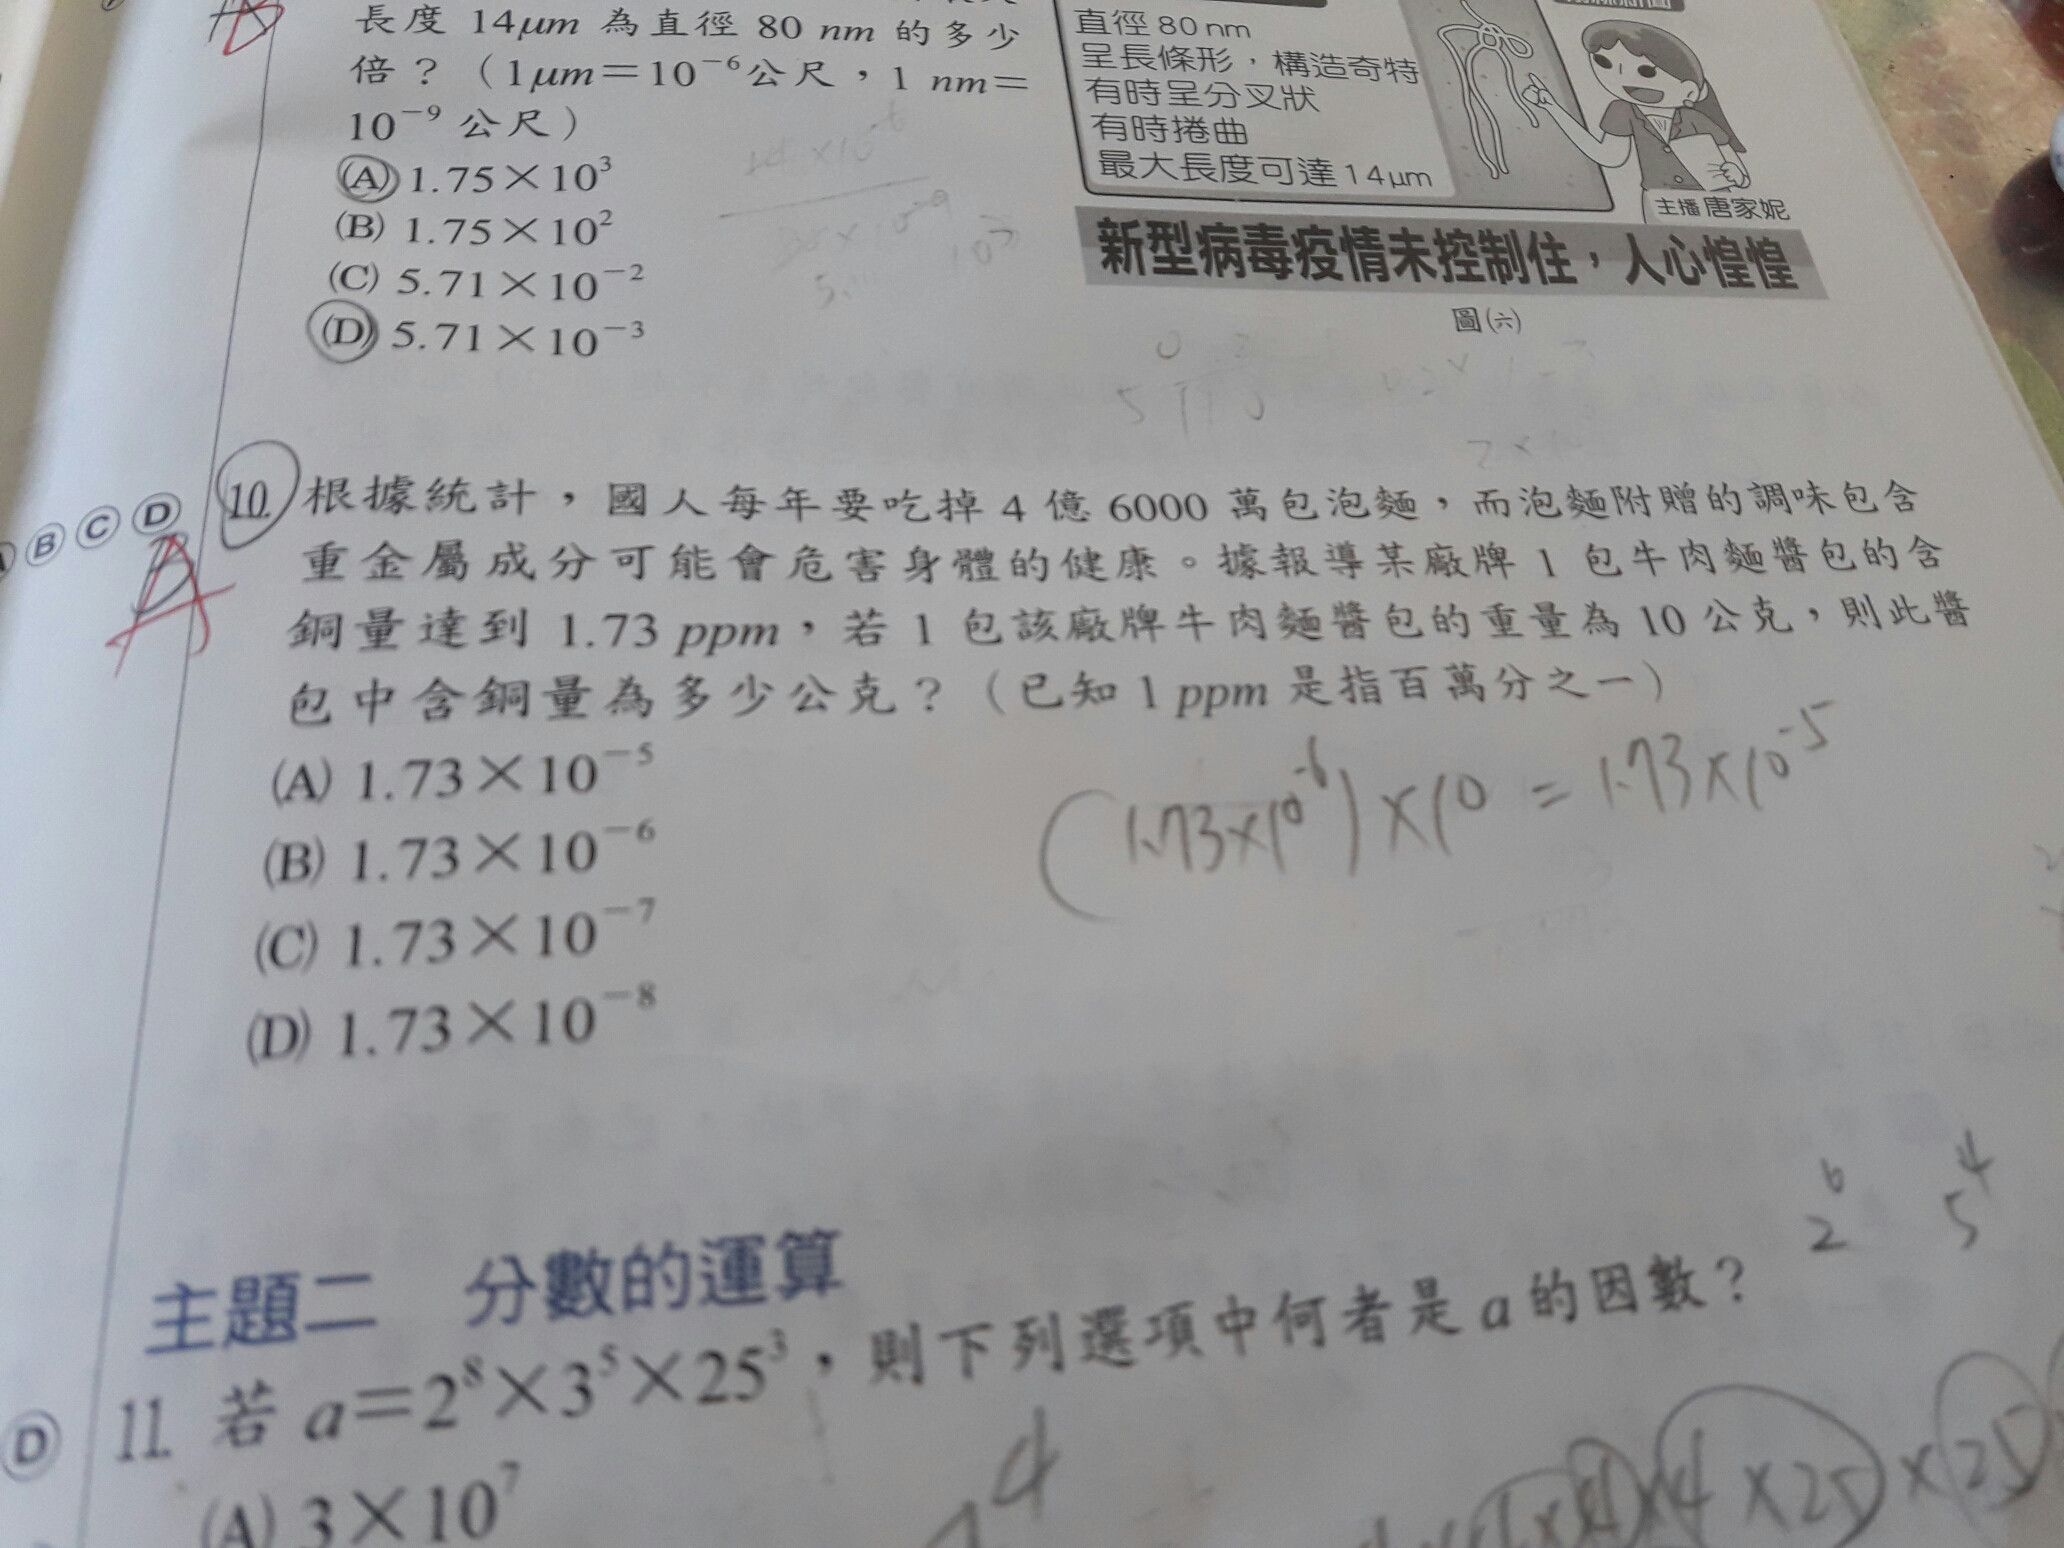 長度 14μm 為直徑 80 nm 的多少
倍？（1μm＝10⁻⁶公尺，1 nm＝
10⁻⁹ 公尺）
(A) 1.75×10³
(B) 1.75×10²
(C) 5.71×10⁻²
(D) 5.71×10⁻³
直徑 80 nm
呈長條形，構造奇特
有時呈分叉狀
有時捲曲
最大長度可達 14μm
主播 唐家妮
新型病毒疫情未控制住，人心惶惶
圖(六)
Ⓑ Ⓒ Ⓓ
A
10. 根據統計，國人每年要吃掉 4 億 6000 萬包泡麵，而泡麵附贈的調味包含
重金屬成分可能會危害身體的健康。據報導某廠牌 1 包牛肉麵醬包的含
銅量達到 1.73 ppm，若 1 包該廠牌牛肉麵醬包的重量為 10 公克，則此醬
包中含銅量為多少公克？（已知 1 ppm 是指百萬分之一）
(A) 1.73×10⁻⁵
(B) 1.73×10⁻⁶
(C) 1.73×10⁻⁷
(D) 1.73×10⁻⁸
(1.73×10⁻⁶)×10＝1.73×10⁻⁵
2⁶ 5⁴
主題二 分數的運算
Ⓓ 11. 若 a＝2⁸×3⁵×25³，則下列選項中何者是 a 的因數？
(A) 3×10⁷
×4×25×25